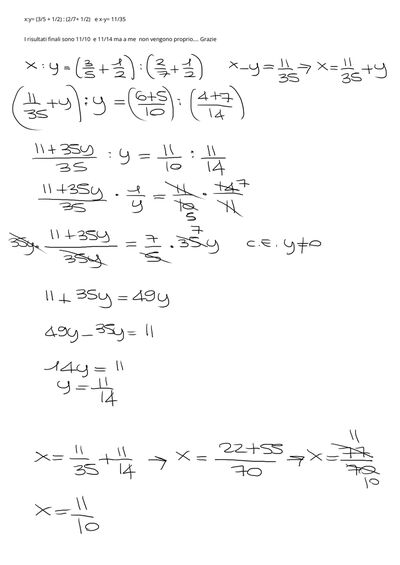 x:y= (3/5 + 1/2) : (2/7+ 1/2)   e x-y= 11/35
I risultati finali sono 11/10  e 11/14 ma a me  non vengono proprio.... Grazie
x : y = (3/5 + 1/2) : (2/7 + 1/2)   x-y = 11/35 → x = 11/35 + y
(11/35 + y) : y = (6+5/10) : (4+7/14)
11+35y/35 : y = 11/10 : 11/14
11+35y/35 · 1/y = 11/10 5 · 14 7/11
35y · 11+35y/35y = 7/5 · 35 7 y   C.E. y≠0
11 + 35y = 49y
49y - 35y = 11
14y = 11
y = 11/14
x = 11/35 + 11/14 → x = 22+55/70 → x = 11 77/70 10
x = 11/10